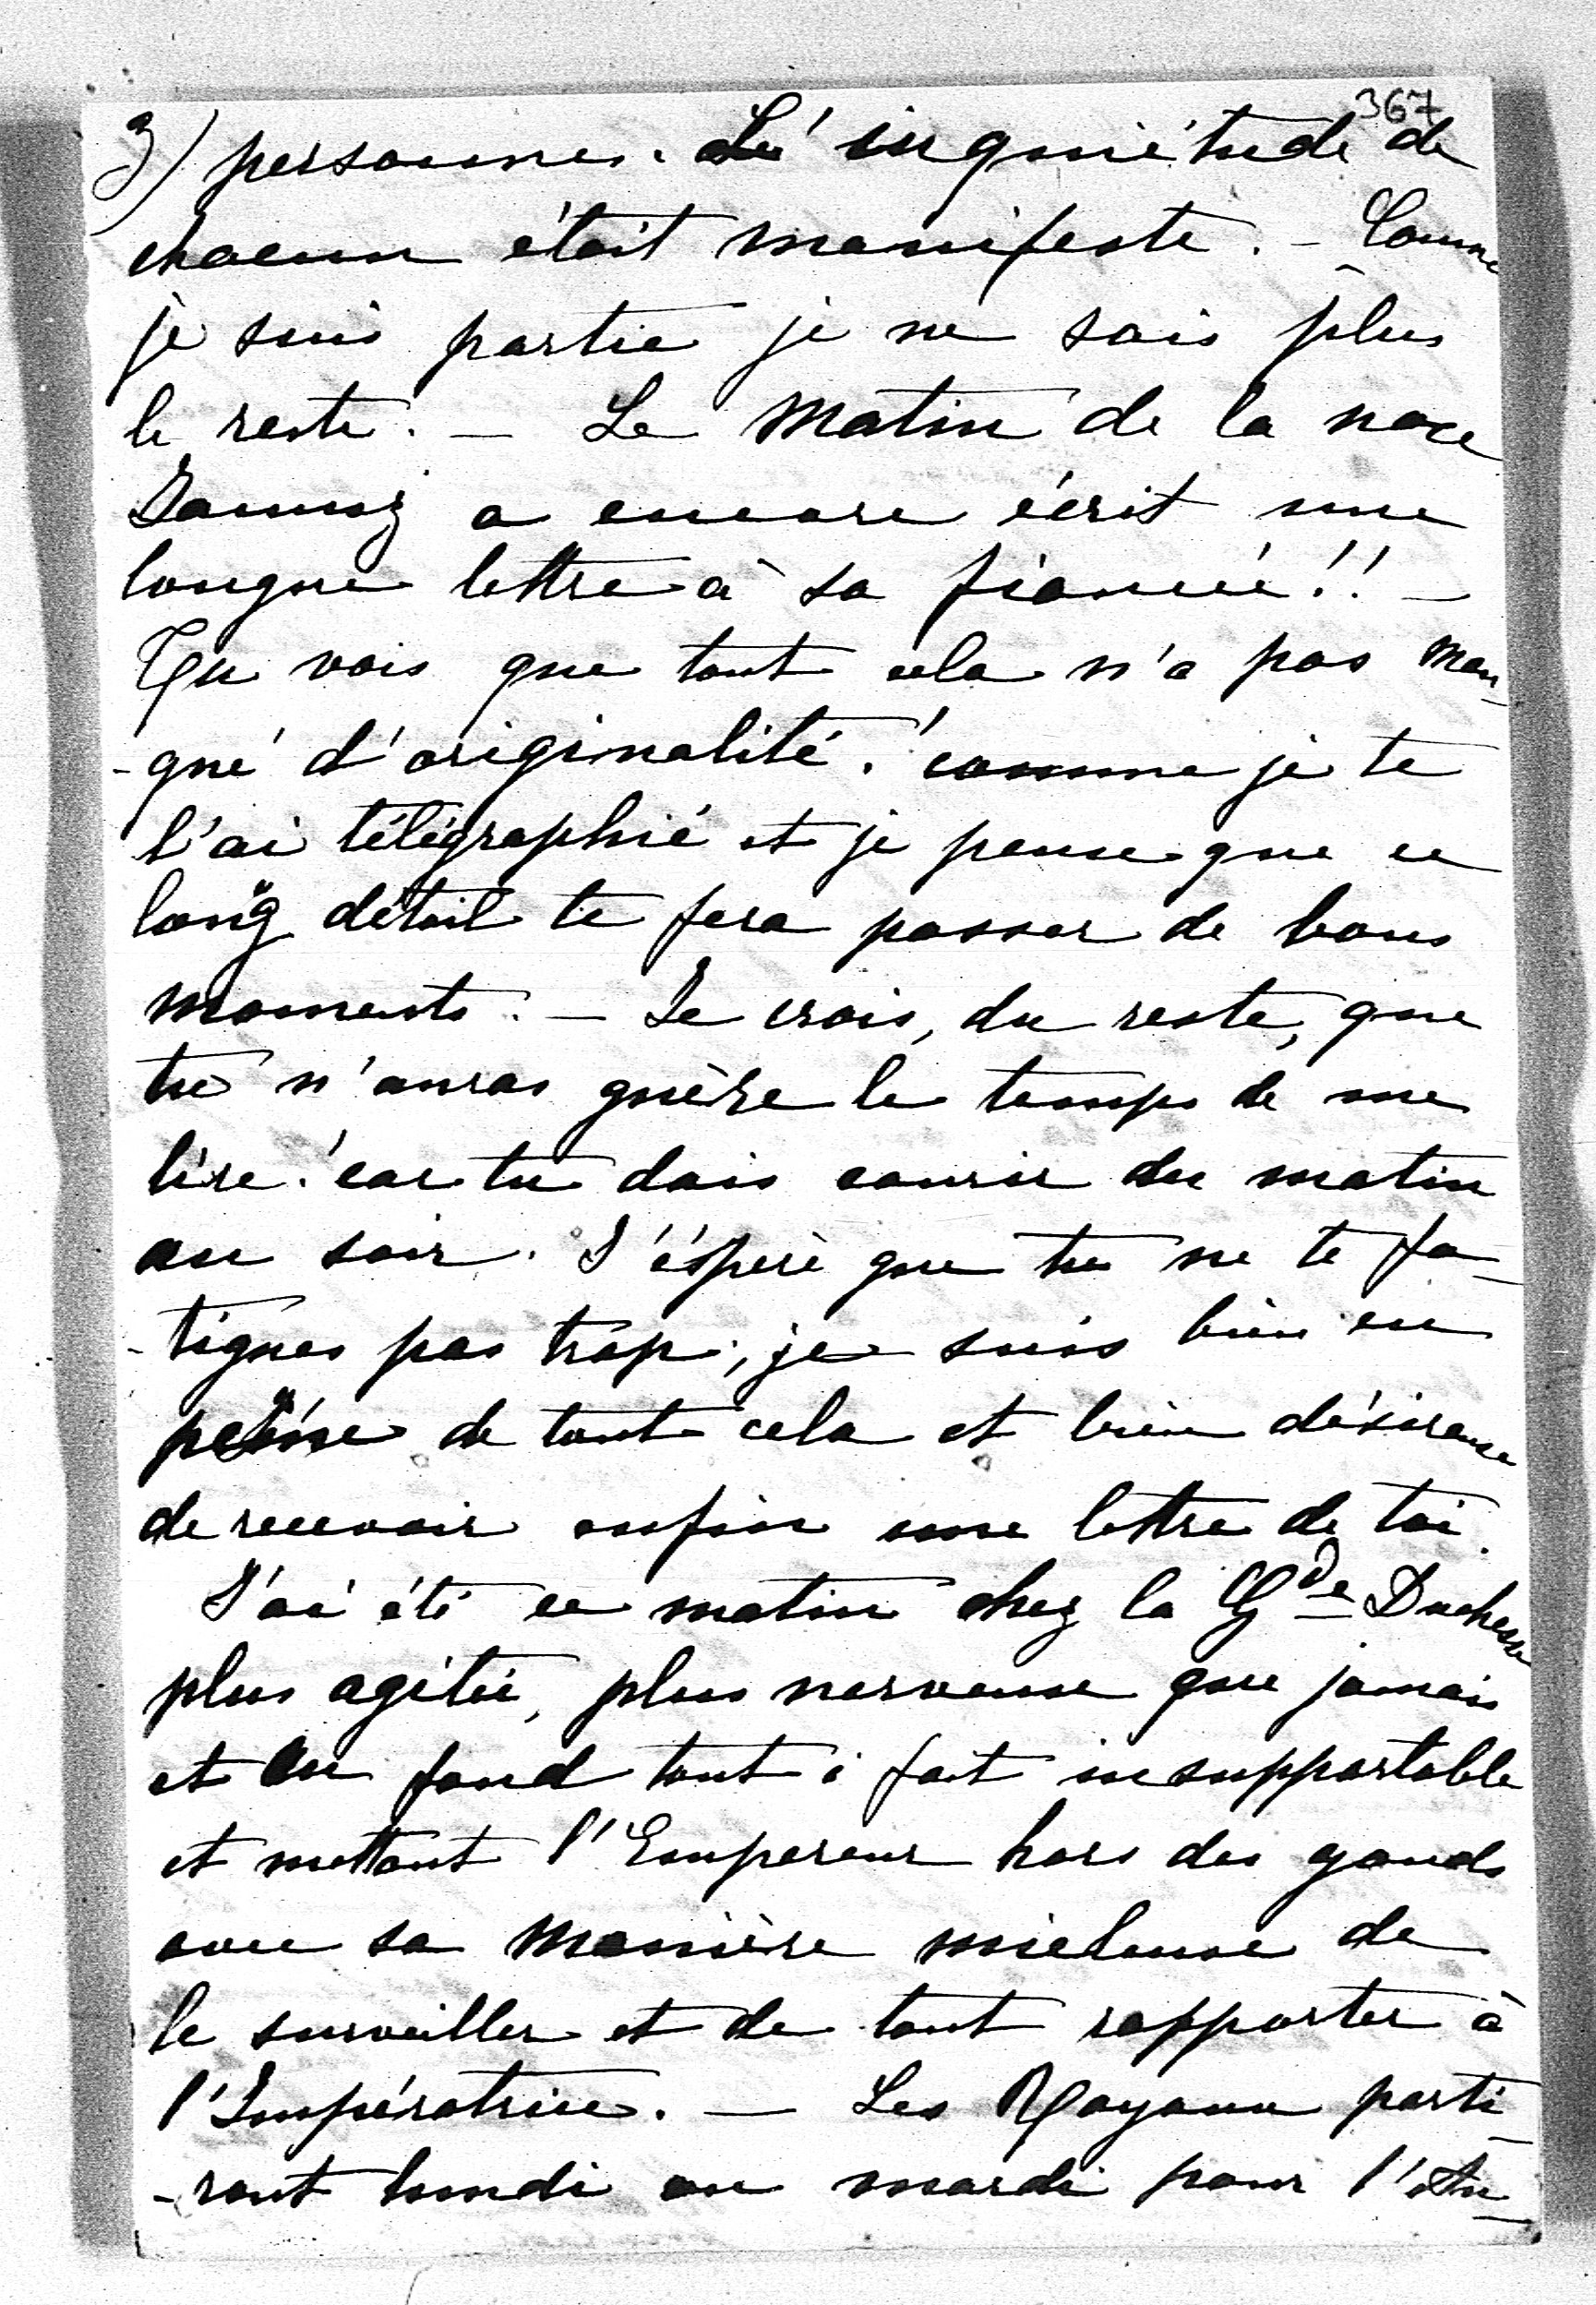 367
3) personnes. L'inquiétude de
chacun était manifeste. – Comme
je suis partie je ne sais plus
le reste. – Le matin de la noce
a encore écrit une
longue lettre à sa fiancée!! –
Tu vois que tout cela n'a pas man-
-qué d'originalité! comme je te
l'ai télégraphié et je pense que ce
long détail te fera passer de bons
moments. – Je crois, du reste, que
tu n'auras guère le temps de me
lire! car tu dois courir du matin
au soir. J'éspère que tu ne te fa-
-tigues pas trop, je suis bien en
peine de tout cela et bien désireuse
de recevoir enfin une lettre de toi.
J'ai été ce matin chez la Gde Duchesse
plus agitée, plus nerveuse que jamais
et au fond tout à fait insupportable
et mettant l'Empereur hors des gonds
avec sa manière mieleuse de
le surveiller et de tout rapporter à
l'Impératrice. – Les parti-
-ront lundi ou mardi pour l'An-